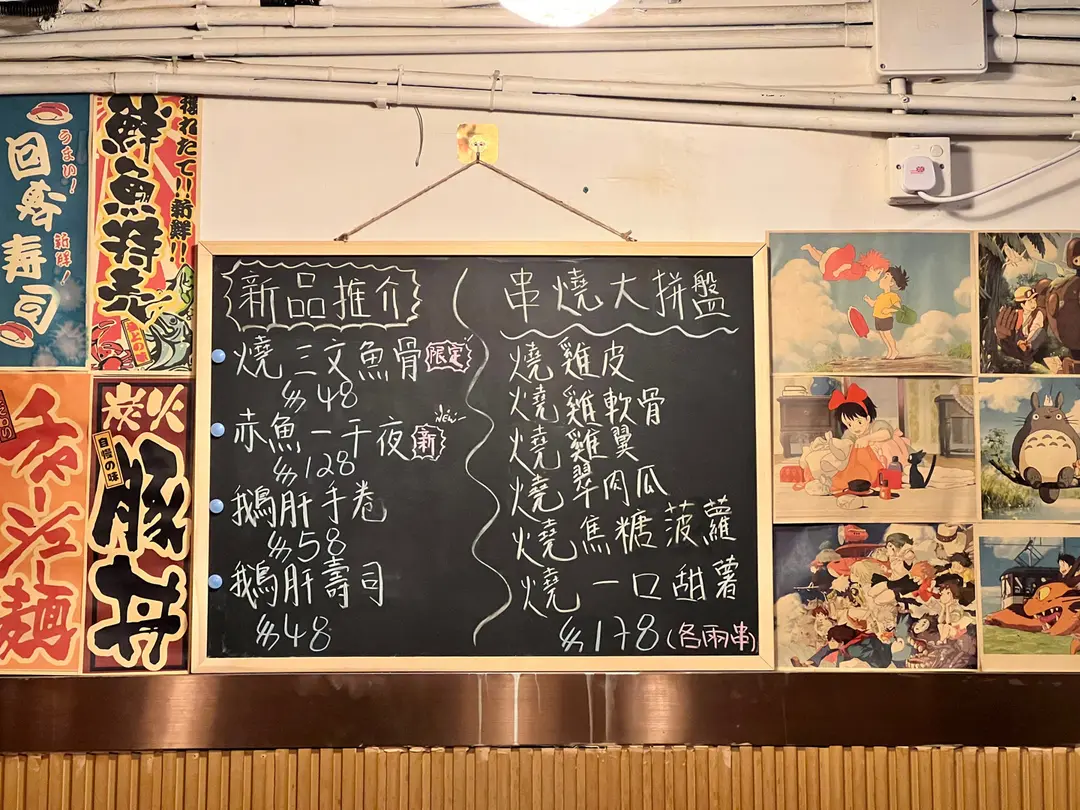 うまい!
回寿寿司
新鮮!
獲れたて!!新鮮!!
鮮魚特売
チャーシュー麺
炭火
自慢の味
豚丼
新品推介
燒三文魚骨 限定
$48
赤魚一干夜 NEW 新
$128
鵝肝手卷
$58
鵝肝壽司
$48
串燒大拼盤
燒雞皮
燒雞軟骨
燒雞翼
燒翠肉瓜
燒焦糖菠蘿
燒一口甜薯
$178 (各兩串)